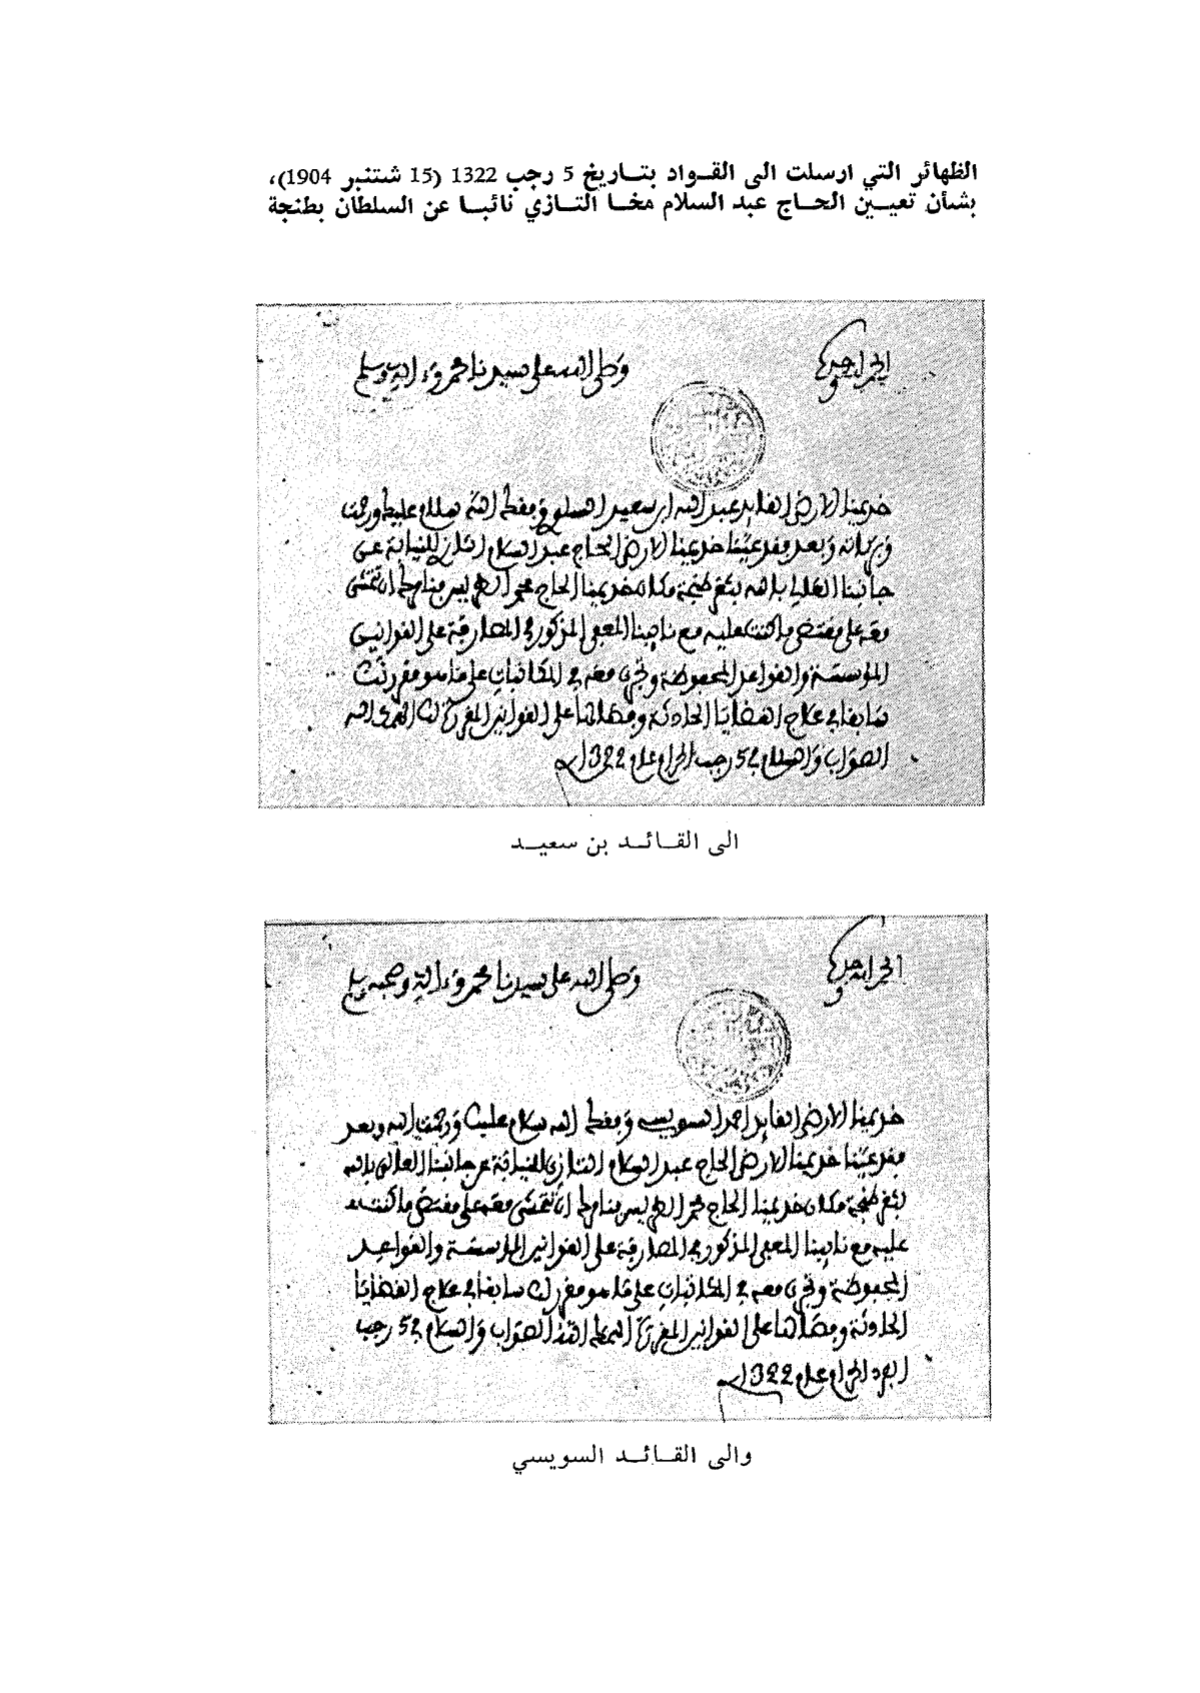 الظهائر التي ارسلت الى القــواد بتــاريخ 5 رجب 1322 (15 شتنبر 1904)،
بشأن تعيــين الحــاج عبد السلام مخــا التــازي نائبــا عن السلطان بطنجة
الحمد لله وحده
وصلى الله على سيدنا محمد وءاله وسلم
خديمنا الارضى القايد عبد الله ابن سعيد السلوي وفقك الله وسلام عليك ورحمت
وبركاته وبعد فقد عيننا خديمنا الارضى الحاج عبد السلام التازي للنيابة عن
جانبنا العلي بالله بثغر طنجة مكان خديمنا الحاج محمد الطريس فنامرك ان تتمشى
معه على مقتضى ما كنت عليه مع نايبنا المعين المذكور في المصارفة على القوانين
المؤسسة والقواعد المحفوظة وتجري معه في المكاتبات على ما هو مقرر لك
سابقا في علاج القضايا الحادثة وفصالها على القوانين المقررة لك اعانك الله
الصواب والسلام في 5 رجب الحرام عام 1322
الى القــائــد بن سعيــد
الحمد لله وحده
وصلى الله على سيدنا محمد وءاله وصحبه وسلم
خديمنا الارضى القايد احمد السويسي وفقك الله وسلام عليك ورحمت الله وبعد
فقد عيننا خديمنا الارضى الحاج عبد السلام التازي للنيابة عن جانبنا العالي بالله
بثغر طنجة مكان خديمنا الحاج محمد الطريس فنامرك ان تتمشى معه على مقتضى ما كنت
عليه مع نايبنا المعين المذكور في المصارفة على القوانين المؤسسة والقواعد
المحفوظة وتجري معه في المكاتبات على ما هو مقرر لك سابقا في علاج القضايا
الحادثة وفصالها على القوانين المقررة الهمك الله الصواب والسلام في 5 رجب
الفرد الحرام عام 1322
والى القــائــد السويسي